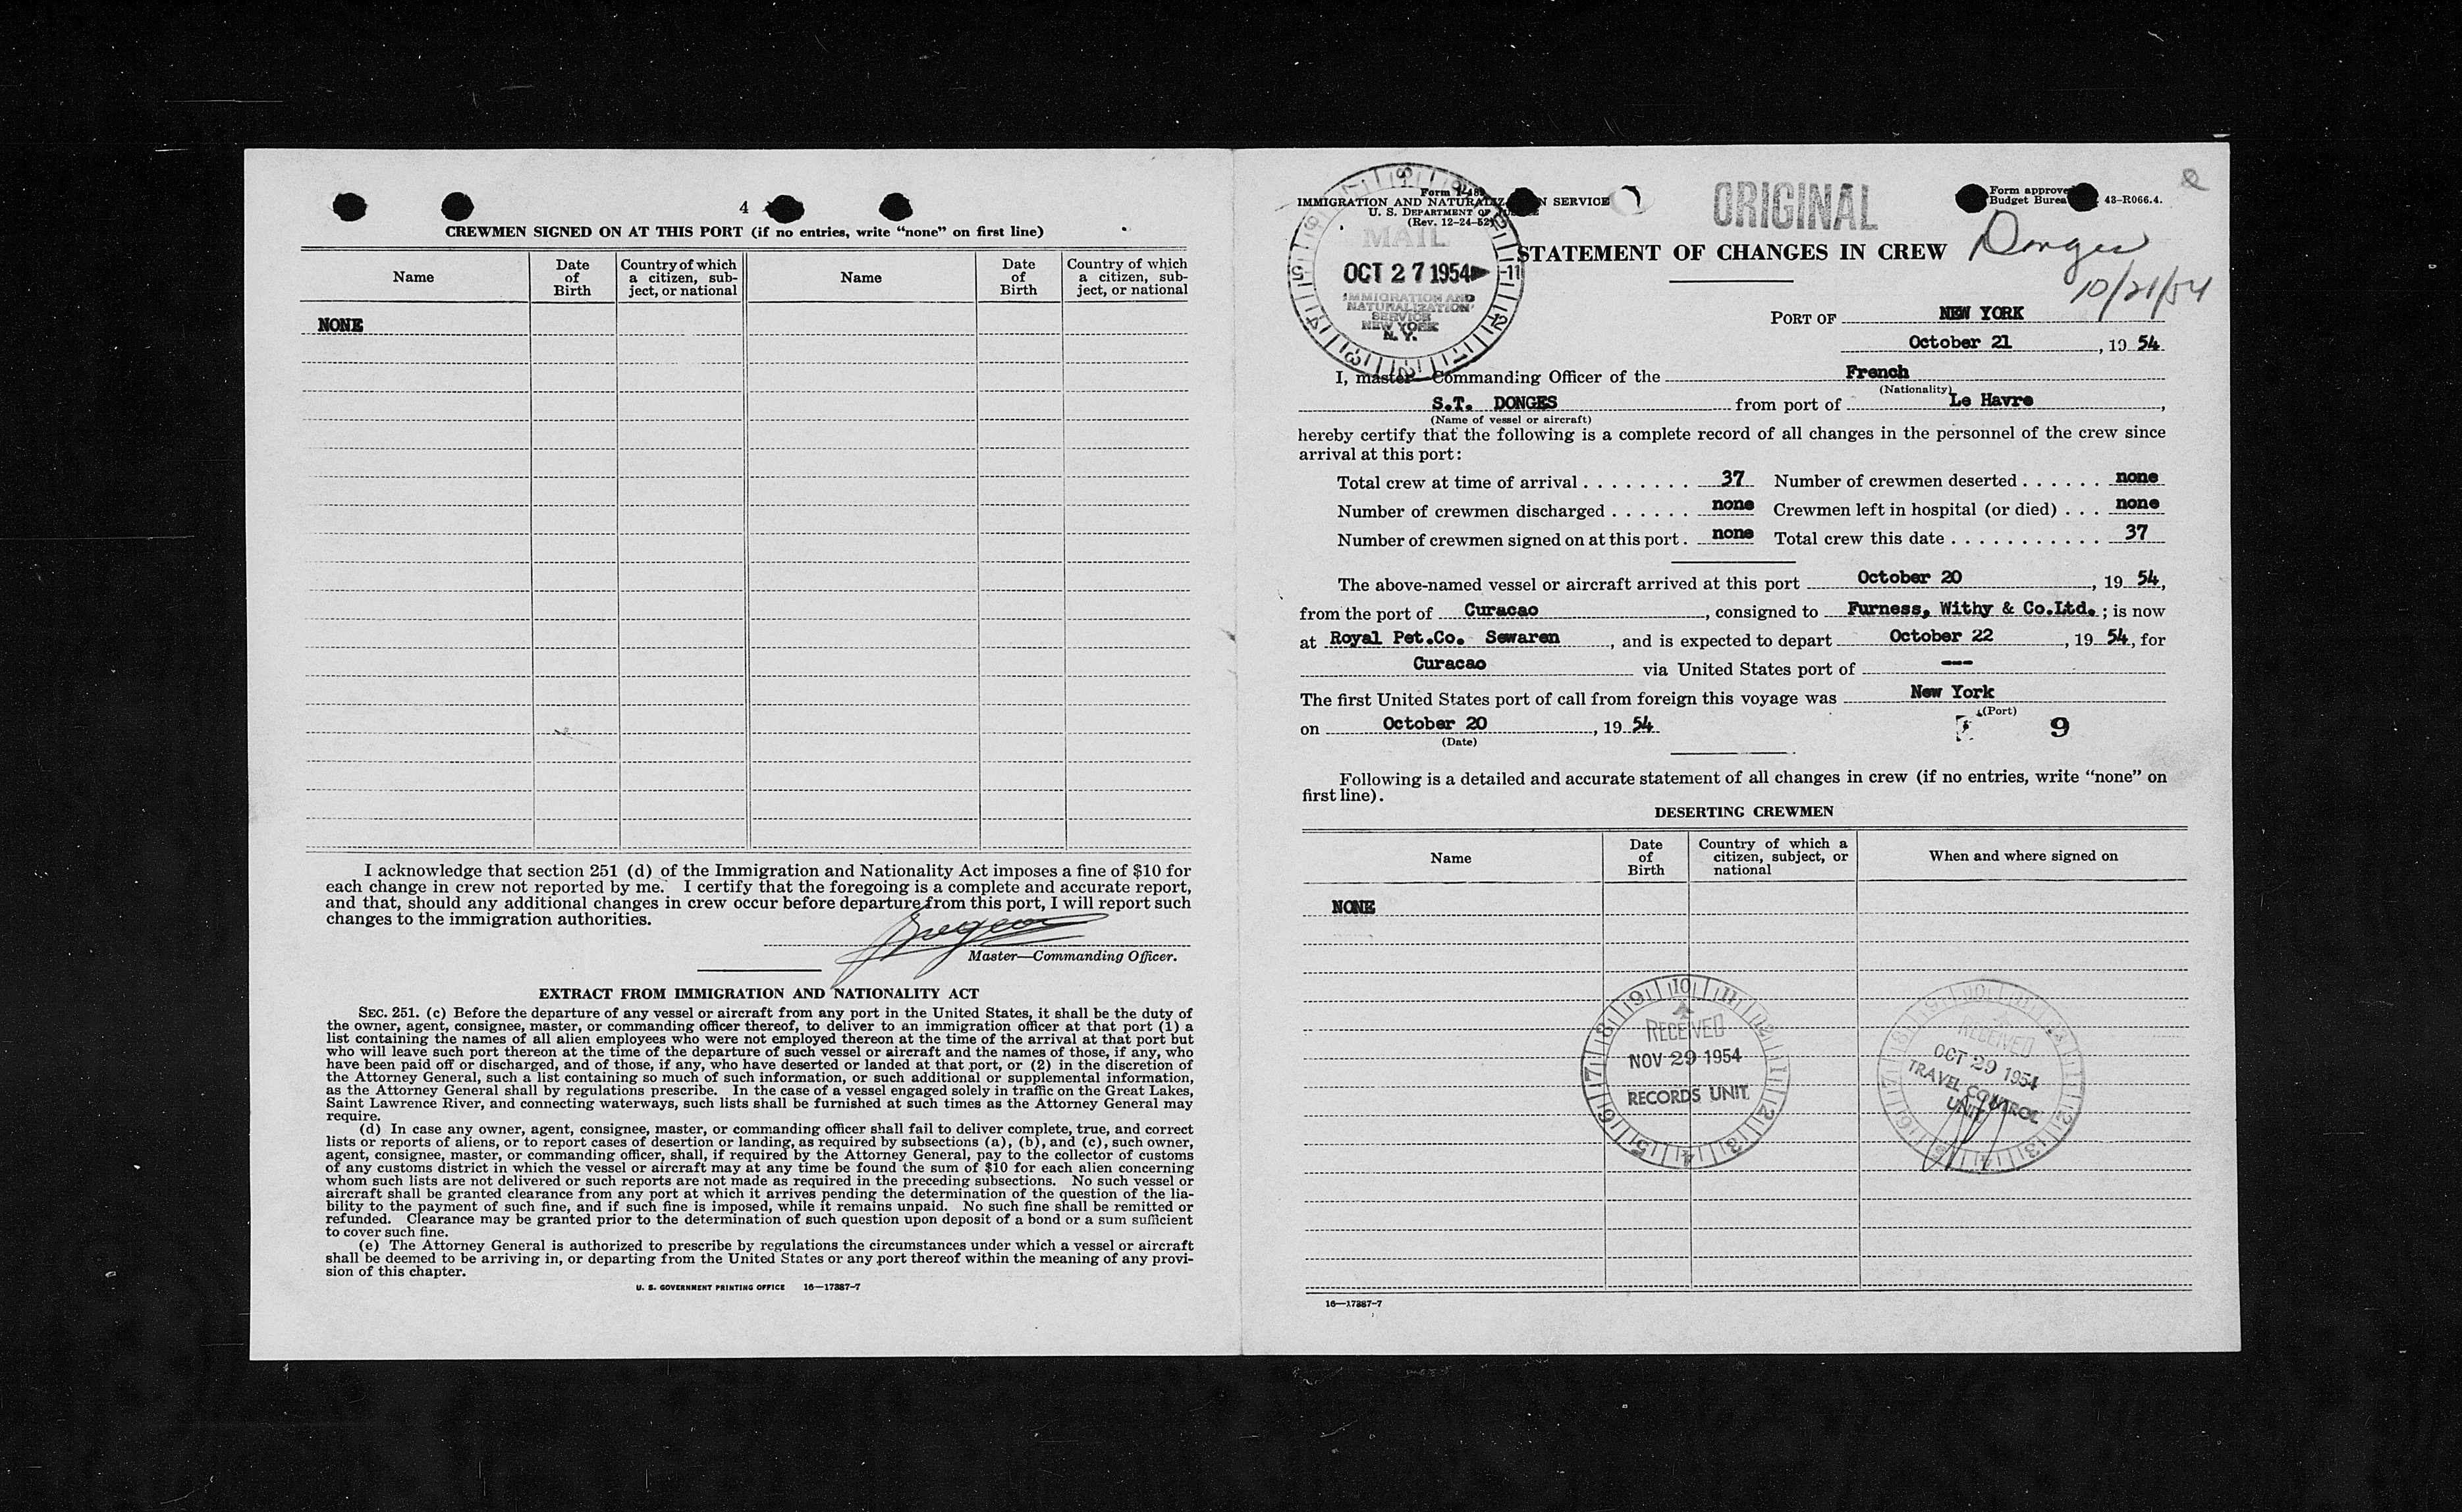 4
CREWMEN SIGNED ON AT THIS PORT (if no entries, write “none” on first line)
Name
Date of Birth
Country of which a citizen, sub-ject, or national
Name
Date of Birth
Country of which a citizen, sub-ject, or national
NONE
I acknowledge that section 251 (d) of the Immigration and Nationality Act imposes a fine of $10 for
each change in crew not reported by me. I certify that the foregoing is a complete and accurate report,
and that, should any additional changes in crew occur before departure from this port, I will report such
changes to the immigration authorities.
Master—Commanding Officer.
EXTRACT FROM IMMIGRATION AND NATIONALITY ACT
SEC. 251. (c) Before the departure of any vessel or aircraft from any port in the United States, it shall be the duty of
the owner, agent, consignee, master, or commanding officer thereof, to deliver to an immigration officer at that port (1) a
list containing the names of all alien employees who were not employed thereon at the time of the arrival at that port but
who will leave such port thereon at the time of the departure of such vessel or aircraft and the names of those, if any, who
have been paid off or discharged, and of those, if any, who have deserted or landed at that port, or (2) in the discretion of
the Attorney General, such a list containing so much of such information, or such additional or supplemental information,
as the Attorney General shall by regulations prescribe. In the case of a vessel engaged solely in traffic on the Great Lakes,
Saint Lawrence River, and connecting waterways, such lists shall be furnished at such times as the Attorney General may
require.
(d) In case any owner, agent, consignee, master, or commanding officer shall fail to deliver complete, true, and correct
lists or reports of aliens, or to report cases of desertion or landing, as required by subsections (a), (b), and (c), such owner,
agent, consignee, master, or commanding officer, shall, if required by the Attorney General, pay to the collector of customs
of any customs district in which the vessel or aircraft may at any time be found the sum of $10 for each alien concerning
whom such lists are not delivered or such reports are not made as required in the preceding subsections. No such vessel or
aircraft shall be granted clearance from any port at which it arrives pending the determination of the question of the lia-
bility to the payment of such fine, and if such fine is imposed, while it remains unpaid. No such fine shall be remitted or
refunded. Clearance may be granted prior to the determination of such question upon deposit of a bond or a sum sufficient
to cover such fine.
(e) The Attorney General is authorized to prescribe by regulations the circumstances under which a vessel or aircraft
shall be deemed to be arriving in, or departing from the United States or any port thereof within the meaning of any provi-
sion of this chapter.
U. S. GOVERNMENT PRINTING OFFICE 16—17387-7
Form
IMMIGRATION AND SERVICE
U. S. DEPARTMENT OF
(Rev. 12-24-52)
MAIL
OCT 27 1954
IMMIGRATION AND
NATURALIZATION
SERVICE
NEW YORK
N. Y.
ORIGINAL
Form approve
Budget Burea 43-R066.4.
STATEMENT OF CHANGES IN CREW
Donges
10/21/54
PORT OF NEW YORK
October 21, 19 54
I, master Commanding Officer of the French
(Nationality)
S.T. DONGES from port of Le Havre,
(Name of vessel or aircraft)
hereby certify that the following is a complete record of all changes in the personnel of the crew since
arrival at this port:
Total crew at time of arrival . . . . . . . . 37 Number of crewmen deserted . . . . . . none
Number of crewmen discharged . . . . . . none Crewmen left in hospital (or died) . . . none
Number of crewmen signed on at this port . none Total crew this date . . . . . . . . . . . 37
The above-named vessel or aircraft arrived at this port October 20, 19 54,
from the port of Curacao, consigned to Furness, Withy & Co.Ltd. ; is now
at Royal Pet.Co. Sewaren, and is expected to depart October 22, 19 54, for
Curacao via United States port of ---
The first United States port of call from foreign this voyage was New York
(Port)
on October 20, 19 54
(Date)
9
Following is a detailed and accurate statement of all changes in crew (if no entries, write “none” on
first line).
DESERTING CREWMEN
Name
Date of Birth
Country of which a citizen, subject, or national
When and where signed on
NONE
RECEIVED
NOV 29 1954
RECORDS UNIT
RECEIVED
OCT 29 1954
TRAVEL CONTROL
UNIT
16—17387-7